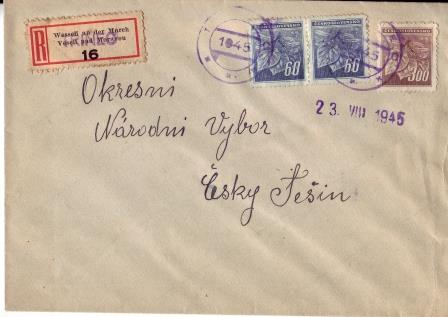 R
Wessell an der March
Veselí nad Moravou
16
1945
ČESKOSLOVENSKO
60
ČESKOSLOVENSKO
60
300
23. VIII 1945
Okresní
Národní Vybor
Česky Těšin